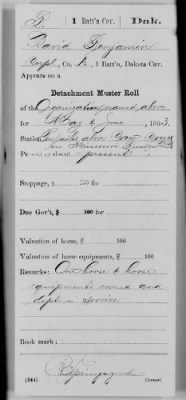 F | 1 Batt'n Cav. | Dak.
David Benjamin
Capt., Co. , 1 Batt'n, Dakota Cav.
Appears on a
Detachment Muster Roll
of the Organization named above
for May & June, 1863.
Station miles above Crow Creek
on Missouri River D.T.
Present or absent present
Stoppage, $ 100 for
Due Gov't, $ 100 for
Valuation of horse, $ 100
Valuation of horse equipments, $ 100
Remarks: One horse & horse
equipments owned and
kept in service
Book mark:
(344) Copyist.